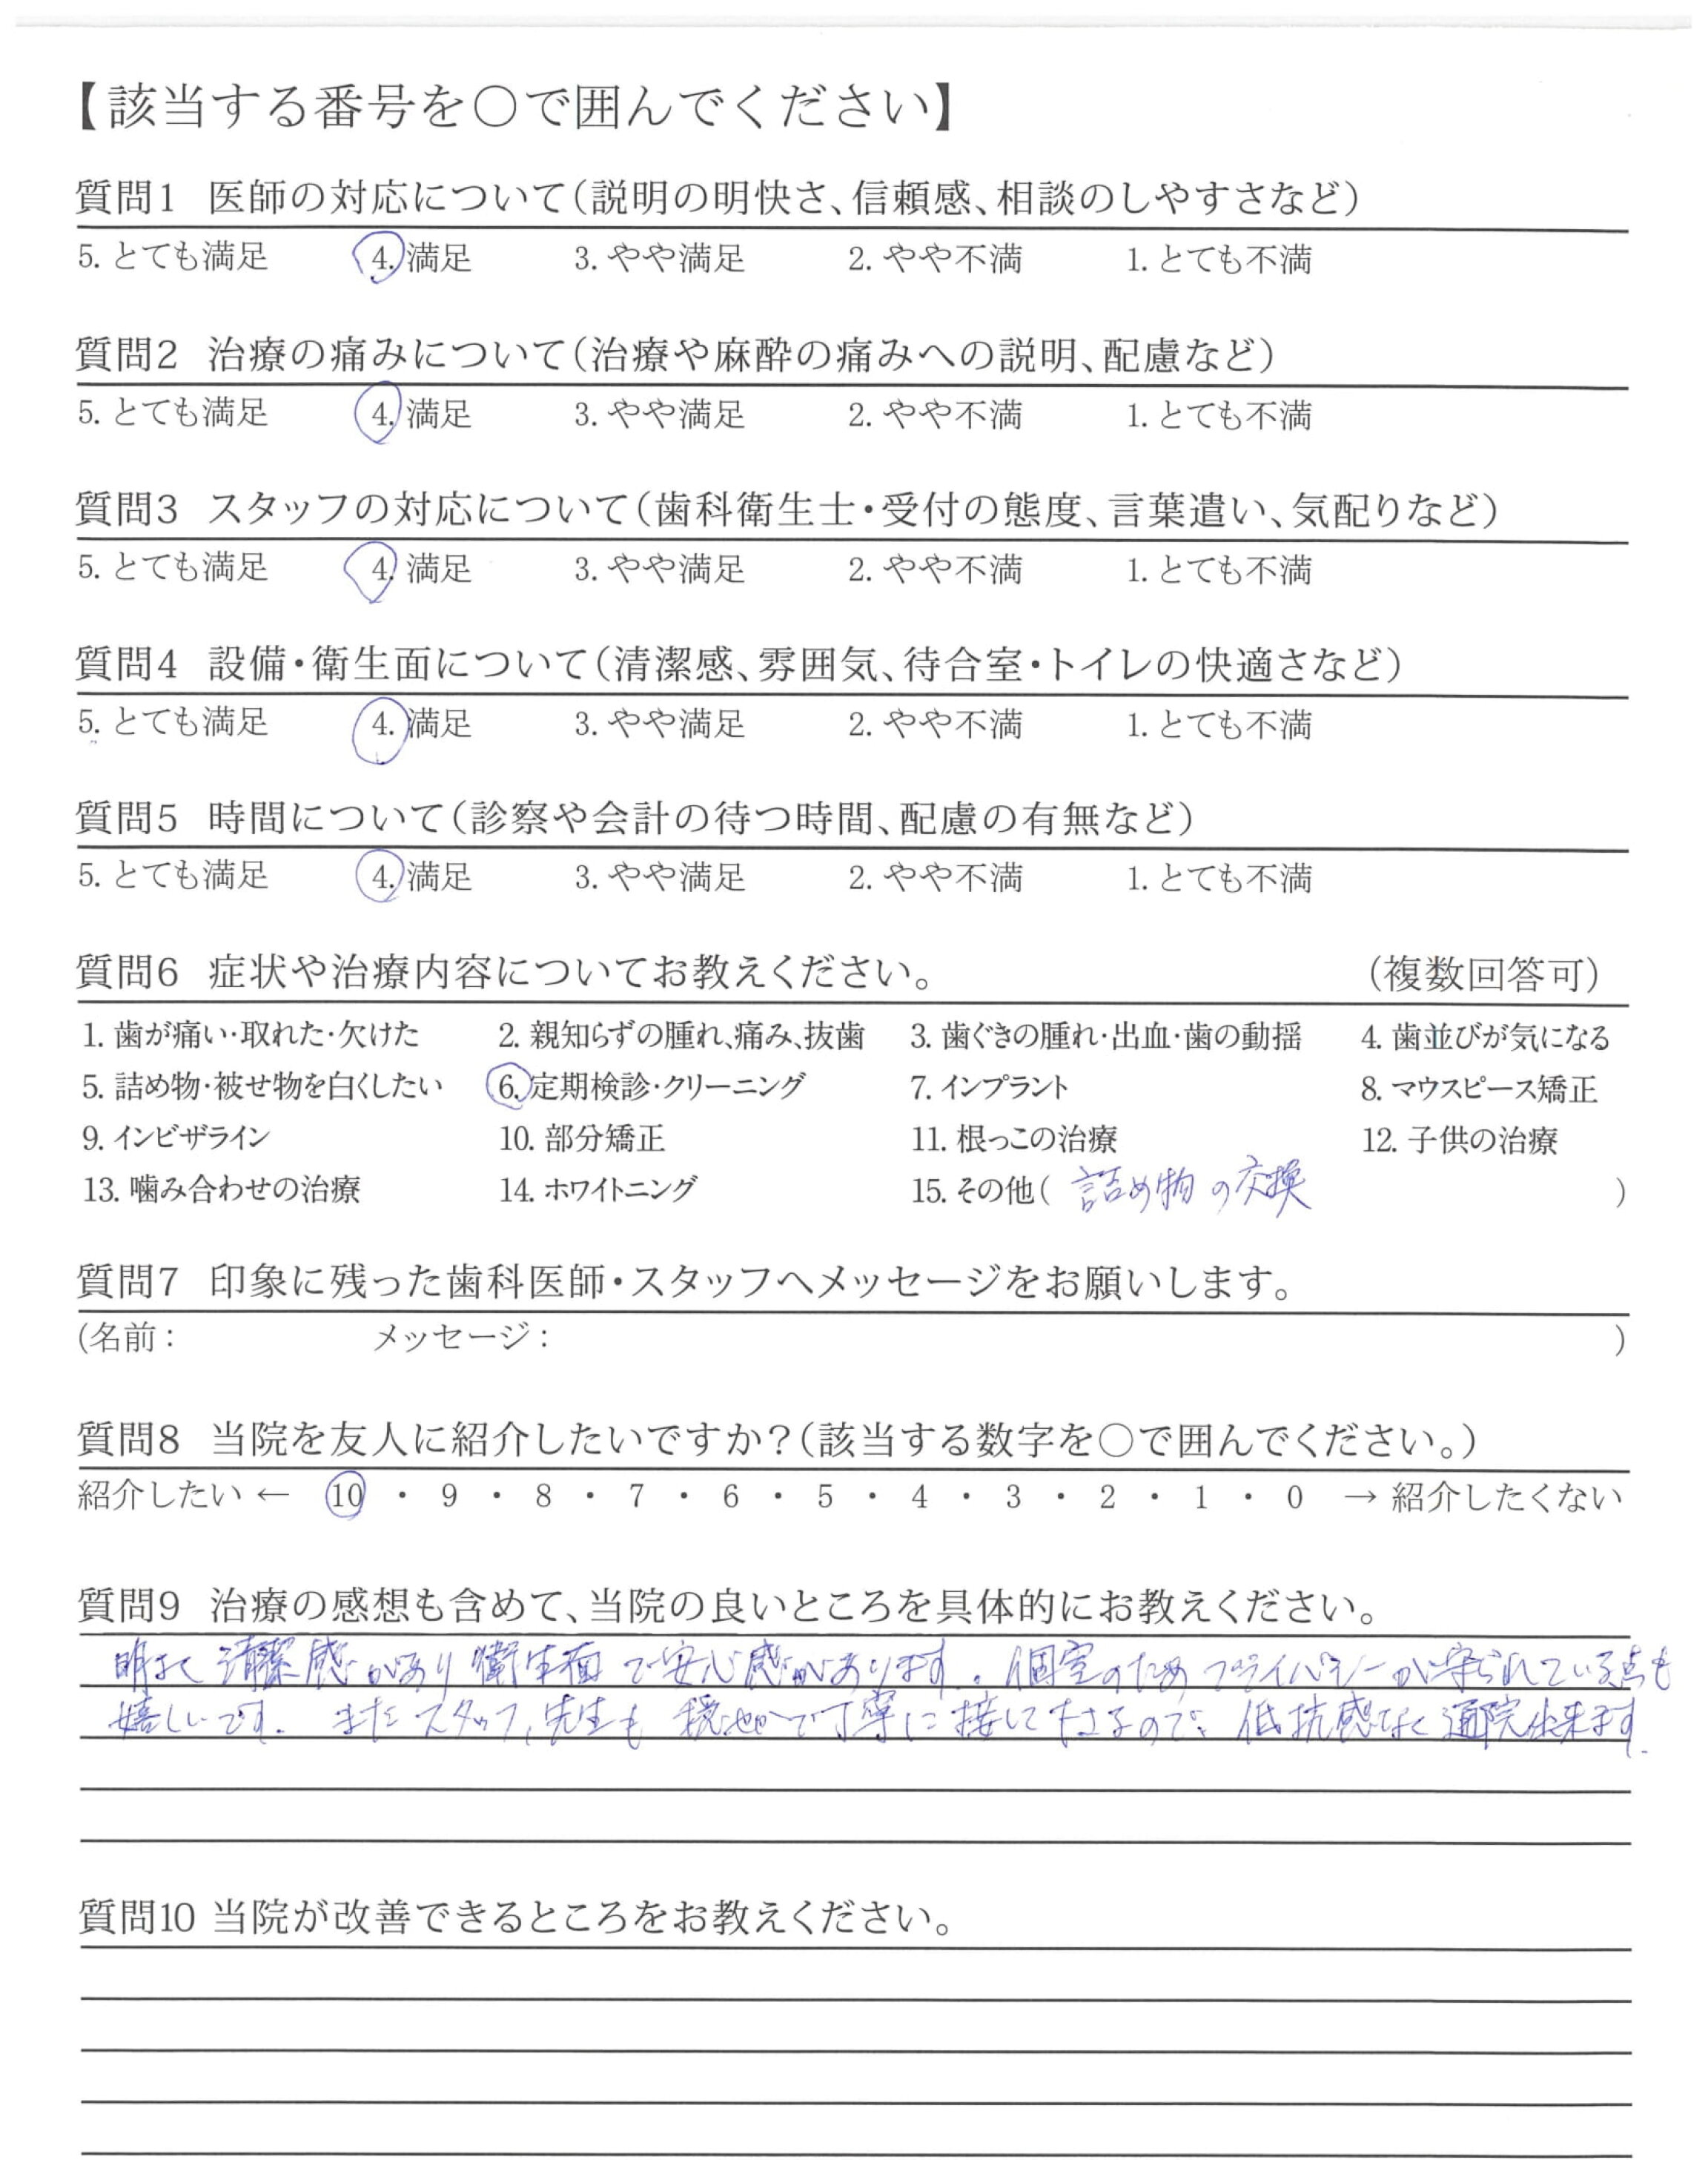 【該当する番号を○で囲んでください】
質問1 医師の対応について(説明の明快さ、信頼感、相談のしやすさなど)
5. とても満足 4. 満足 3. やや満足 2. やや不満 1. とても不満
質問2 治療の痛みについて(治療や麻酔の痛みへの説明、配慮など)
5. とても満足 4. 満足 3. やや満足 2. やや不満 1. とても不満
質問3 スタッフの対応について(歯科衛生士・受付の態度、言葉遣い、気配りなど)
5. とても満足 4. 満足 3. やや満足 2. やや不満 1. とても不満
質問4 設備・衛生面について(清潔感、雰囲気、待合室・トイレの快適さなど)
5. とても満足 4. 満足 3. やや満足 2. やや不満 1. とても不満
質問5 時間について(診察や会計の待つ時間、配慮の有無など)
5. とても満足 4. 満足 3. やや満足 2. やや不満 1. とても不満
質問6 症状や治療内容についてお教えください。 (複数回答可)
1. 歯が痛い・取れた・欠けた 2. 親知らずの腫れ、痛み、抜歯 3. 歯ぐきの腫れ・出血・歯の動揺 4. 歯並びが気になる
5. 詰め物・被せ物を白くしたい 6. 定期検診・クリーニング 7. インプラント 8. マウスピース矯正
9. インビザライン 10. 部分矯正 11. 根っこの治療 12. 子供の治療
13. 噛み合わせの治療 14. ホワイトニング 15. その他( 詰め物の交換 )
質問7 印象に残った歯科医師・スタッフへメッセージをお願いします。
(名前: メッセージ: )
質問8 当院を友人に紹介したいですか?(該当する数字を○で囲んでください。)
紹介したい ← 10 ・ 9 ・ 8 ・ 7 ・ 6 ・ 5 ・ 4 ・ 3 ・ 2 ・ 1 ・ 0 → 紹介したくない
質問9 治療の感想も含めて、当院の良いところを具体的にお教えください。
明るく清潔感があり衛生面で安心感があります。個室のためプライバシーが守られている点も
嬉しいです。またスタッフ、先生も穏やかで丁寧に接して下さるので、低抗感なく通院出来ます。
質問10 当院が改善できるところをお教えください。